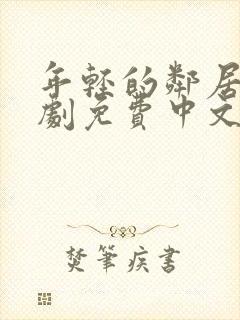 年轻的邻居
劇免費中文
焚筆疾書